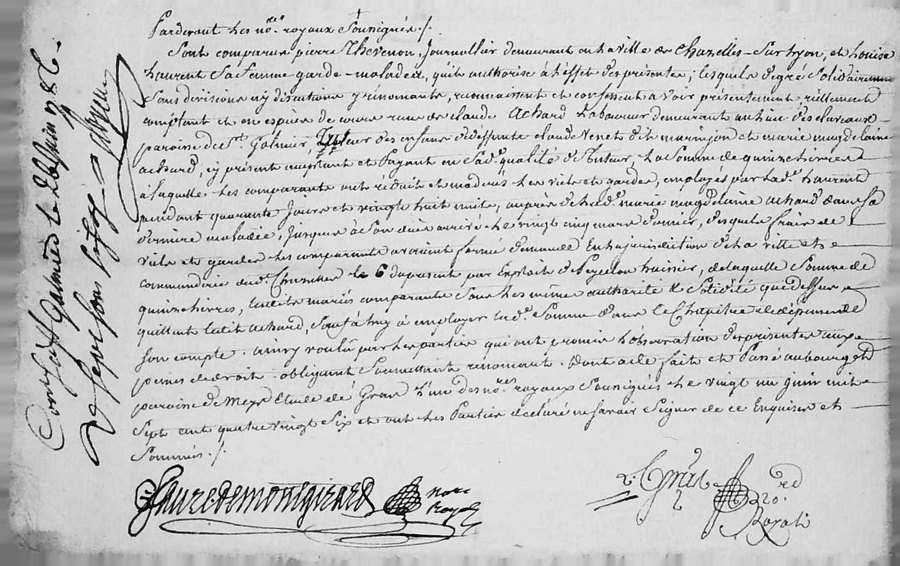 Pardevant Les no.res royaux Soussignés /.
Sont comparus pierre Thevenon, Journallier demeurant en la ville de Chazelles - Sur Lyon, et Louise
Laurent Sa femme garde-malade, qu'il authorise à l'effet des présentes; lesquels de gré Solidairement
Sans division ny discution y rénonçants, reconnaissent et confessent avoir présentement réellement
comptant et en espèces de cours reçu de claude Achard Laboureur demeurant au lieu des
paroisse de St. Galmier, tuteur des enfans de deffunte claude Venet et marie magdelaine
achard, cy présent acceptant et Payant en Sad.e qualité de tuteur, La Somme de quinze Livres à
laquelle Les comparants ont réduit et modéré Les veilles et gardes, employés par lad.e Laurent
pendant quarante Jours et vingt huit nuits, auprès de lad.e marie magdelaine achard dans Sa
dernière maladie, Jusques à Son décès arrivé Le vingt cinq mars dernier, desquels fraix de
veille et gardes Les comparants avoient formé demande En la jurisdiction de La ville et
commanderie dud. Chazelles le 6 du présent par Exploit de huissier, de laquelle Somme de
quinze livres, Lesdits mariés comparants Sous Les même authorité & Solidité que dessus
quittent Ledit achard, Sauf à luy à employer lad.e Somme dans le Chapitre de dépense de
Son compte. ainsy voulu par Les parties qui ont promis L'observation des présentes aux
peines de droit. obligeant Soumettant rénonçant. Dont acte fait et Passé au bourg et
paroisse de L'un des no.res royaux Soussignés Le vingt un juin mil
Sept cent quatre vingt Six et ont Les Parties declaré ne Savoir Signer de ce Enquises et
Sommées /.
faure de montgirard
no.re
Royal
no.
Royal
Con.lé à St Galmier le juin 1786.
Reçu